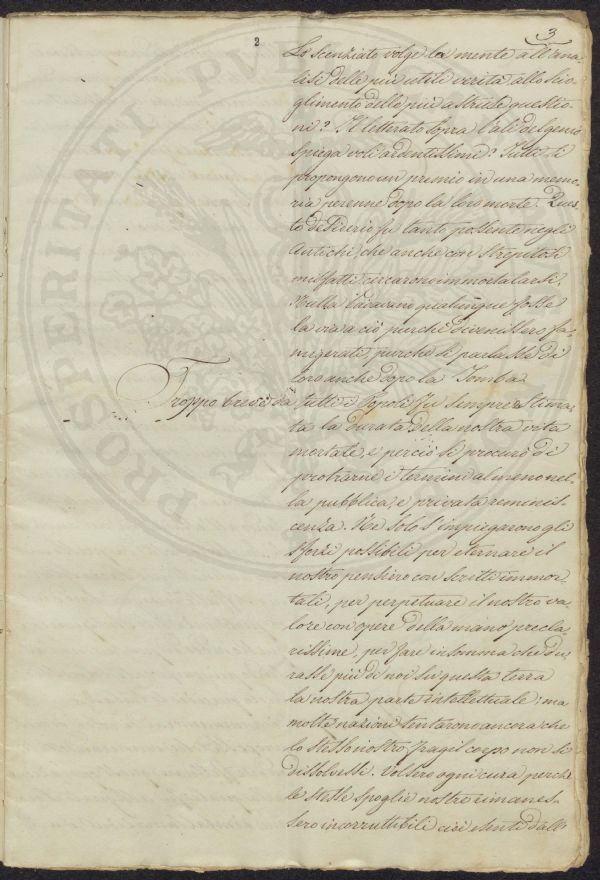 3
2
Lo scenziato volge la mente all'ana-
lisi delle più utili verità allo scio-
glimento delle più astruse questio-
ni? Il letterato sopra l'ali del genio
spiega voli ardentissimi? Tutti si
propongono un premio in una memo-
ria perenne dopo la loro morte. Ques-
to desiderio fù tanto possente negli
Antichi che anche con strepitosi
misfatti cercarono immortalarsi.
Nulla badavano qualunque fosse
la via a ciò purché divenissero fa-
migerati, purché si parlasse di
loro anche dopo la Tomba.
Troppo breve da tutti i Popoli fu sempre stima-
ta la durata della nostra vita
mortale, e perciò si procurò di
protrarne i termini almeno nel-
la pubblica, e privata reminis-
cenza. Ne solo s'impiegarono gli
sforzi possibili per eternare il
nostro pensiero con scritti immor-
tali, per perpetuare il nostro va-
lore con opere della mano precla-
rissime, per fare in somma che du-
rasse più di noi su questa terra
la nostra parte intellettuale; ma
molte nazioni tentarono ancora che
lo stesso nostro fragil corpo non si
dissolvesse. Volsero ogni cura perchè
le stesse spoglie nostre rimanes-
sero incorruttibili, ed esenti dall'
PROSPERITATI PVB